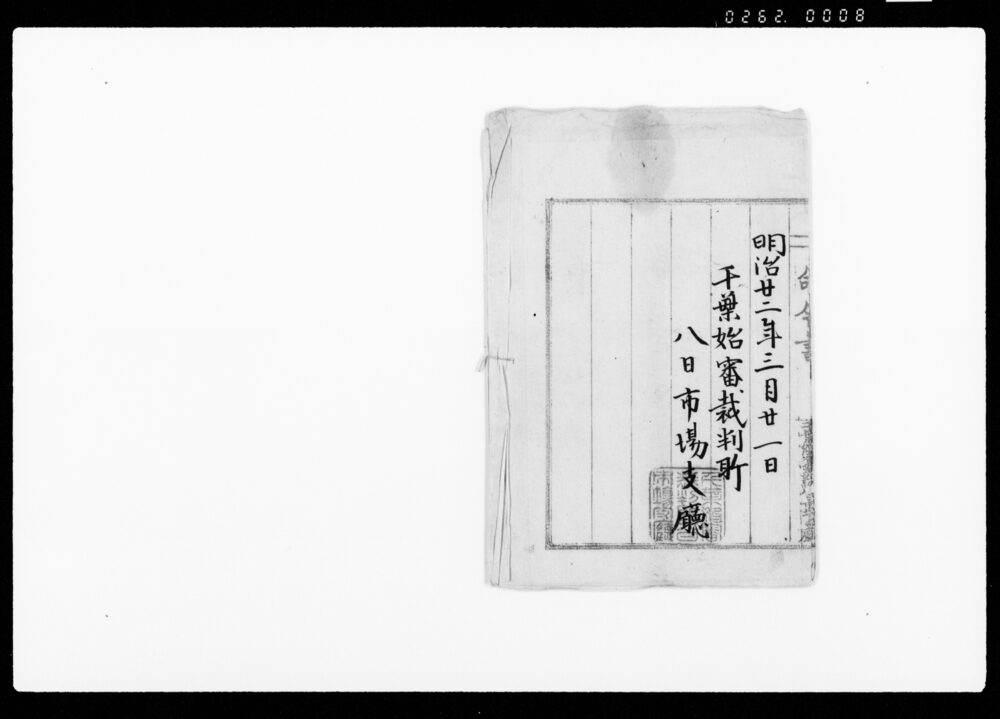 0262. 0008
明治廿二年三月廿一日
千葉始審裁判所
八日市場支廳